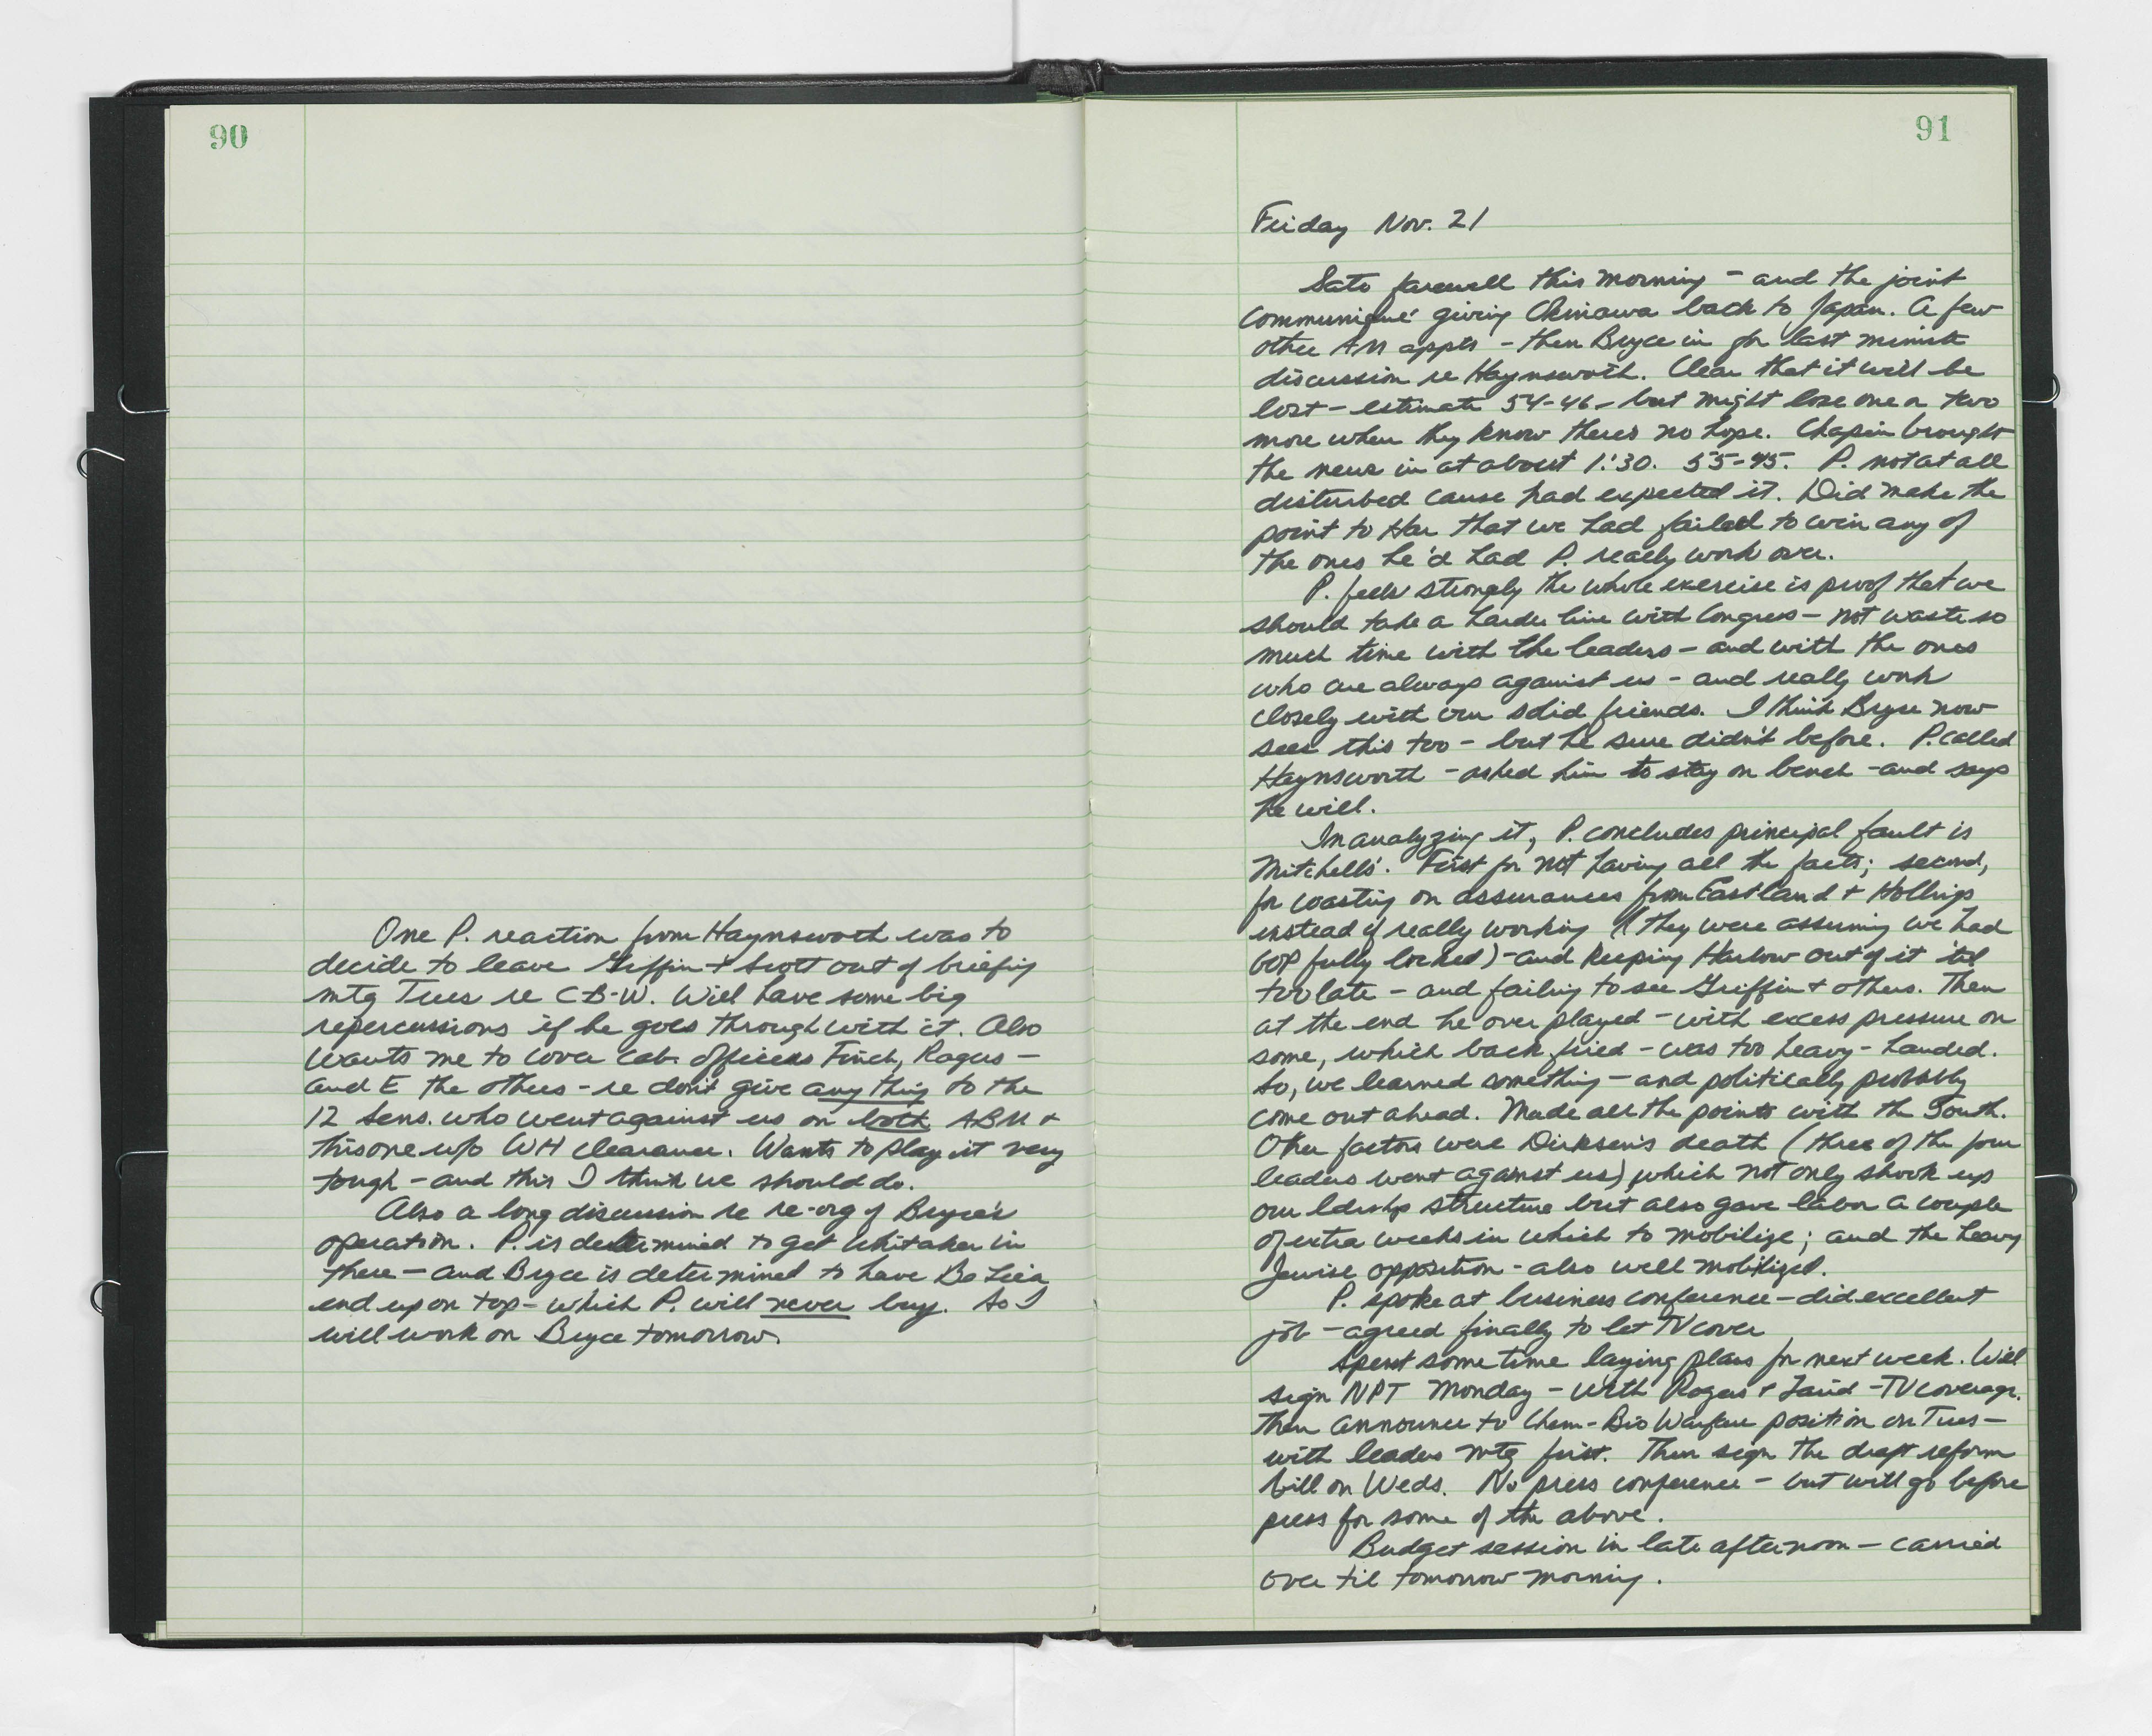 90
One P. reaction from Haynsworth was to
decide to leave Griffin + Scott out of briefing
mtg Tues re CBW. Will have some big
repercussions if he goes through with it. Also
wants me to cover Cab. officers Finch, Rogers —
and E the others - re don't give any thing to the
12 Sens. who went against us on both ABM +
this one w/o WH clearance. Wants to play it very
tough - and this I think we should do.
Also a long discussion re re-org of Bryce's
operation. P. is determined to get Whitaker in
there - and Bryce is determined to have
end up on top - which P. will never buy. So I
will work on Bryce tomorrow.
91
Friday Nov. 21
Sato farewell this morning - and the joint
communique giving Okinawa back to Japan. A few
other AM appts - then Bryce in for last minute
discussion re Haynsworth. Clear that it will be
lost - estimate 54-46 - but might lose one or two
more when they know there's no hope. Chapin brought
the news in at about 1:30. 55-45. P. not at all
disturbed cause had expected it. Did make the
point to Har that we had failed to win any of
the ones he'd had P. really work over.
P. feels strongly the whole exercise is proof that we
should take a harder line with Congress - not waste so
much time with the leaders - and with the ones
who are always against us - and really work
closely with our solid friends. I think Bryce now
sees this too - but he sure didn't before. P. called
Haynsworth - asked him to stay on bench - and says
he will.
In analyzing it, P. concludes principal fault is
Mitchells'. First for not having all the facts; second,
for coasting on assurances from Eastland + Hollings
instead of really working (they were assuming we had
GOP fully locked) - and keeping Harlow out of it 'til
too late - and failing to see Griffin + others. Then
at the end he over played - with excess pressure on
some, which back fired - was too heavy - handed.
So, we learned something - and politically probably
come out ahead. Made all the points with the South.
Other factors were Dirksen's death (three of the four
leaders went against us) which not only shook up
our ldrship structure but also gave labor a couple
of extra weeks in which to mobilize; and the heavy
Jewish opposition - also well mobilized.
P. spoke at business conference - did excellent
job - agreed finally to let TV cover
Spent some time laying plans for next week. Will
sign NPT Monday - with Rogers + Laird - TV coverage.
Then announce to Chem-Bio Warfare position on Tues -
with leaders mtg first. Then sign the draft reform
bill on Weds. No press conference - but will go before
press for some of the above.
Budget session in late afternoon - carried
over til tomorrow morning.